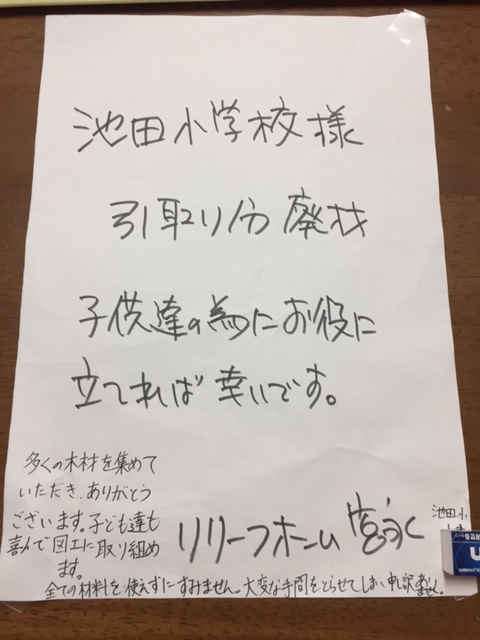 池田小学校様
引取り分 廃材
子供達の為にお役に
立てれば幸いです。
リリーフホーム 宮永
多くの木材を集めて
いただき、ありがとう
ございます。子ども達も
喜んで図工に取り組め
ます。
全ての材料を使えずにすみません。大変な手間をとらせてしまい申し訳ません。
池田小